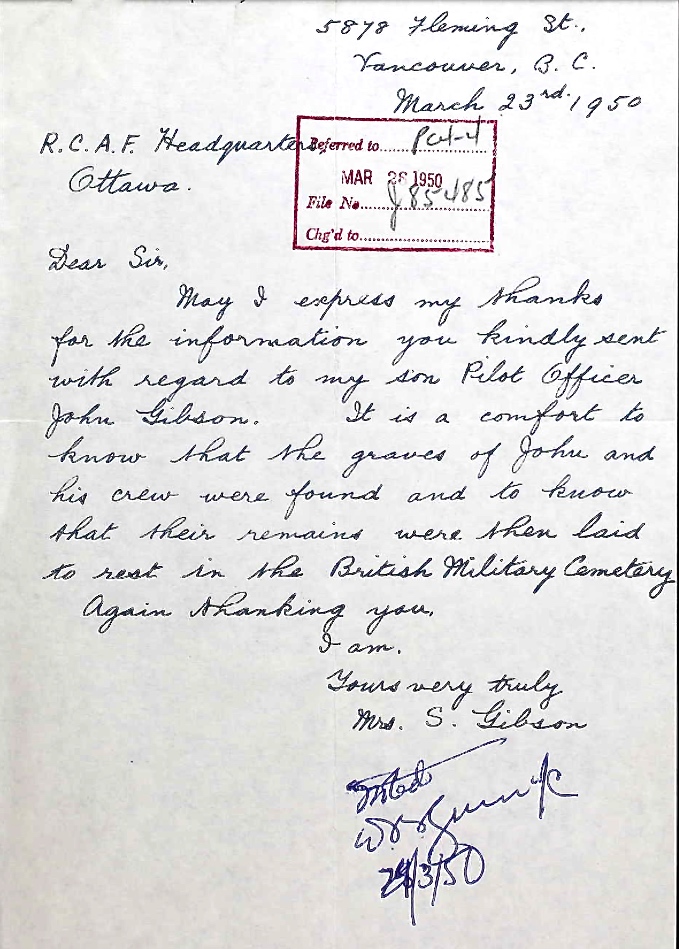 5878 Fleming St.,
Vancouver, B. C.
March 23rd. 1950
R.C.A.F. Headquarters,
Ottawa.
Referred to
MAR 28 1950
File No. J85485
Chg'd to
Dear Sir,
May I express my thanks
for the information you kindly sent
with regard to my son Pilot Officer
John Gibson. It is a comfort to
know that the graves of John and
his crew were found and to know
that their remains were then laid
to rest in the British Military Cemetery
Again thanking you,
I am.
Yours very truly
Mrs. S. Gibson
Noted